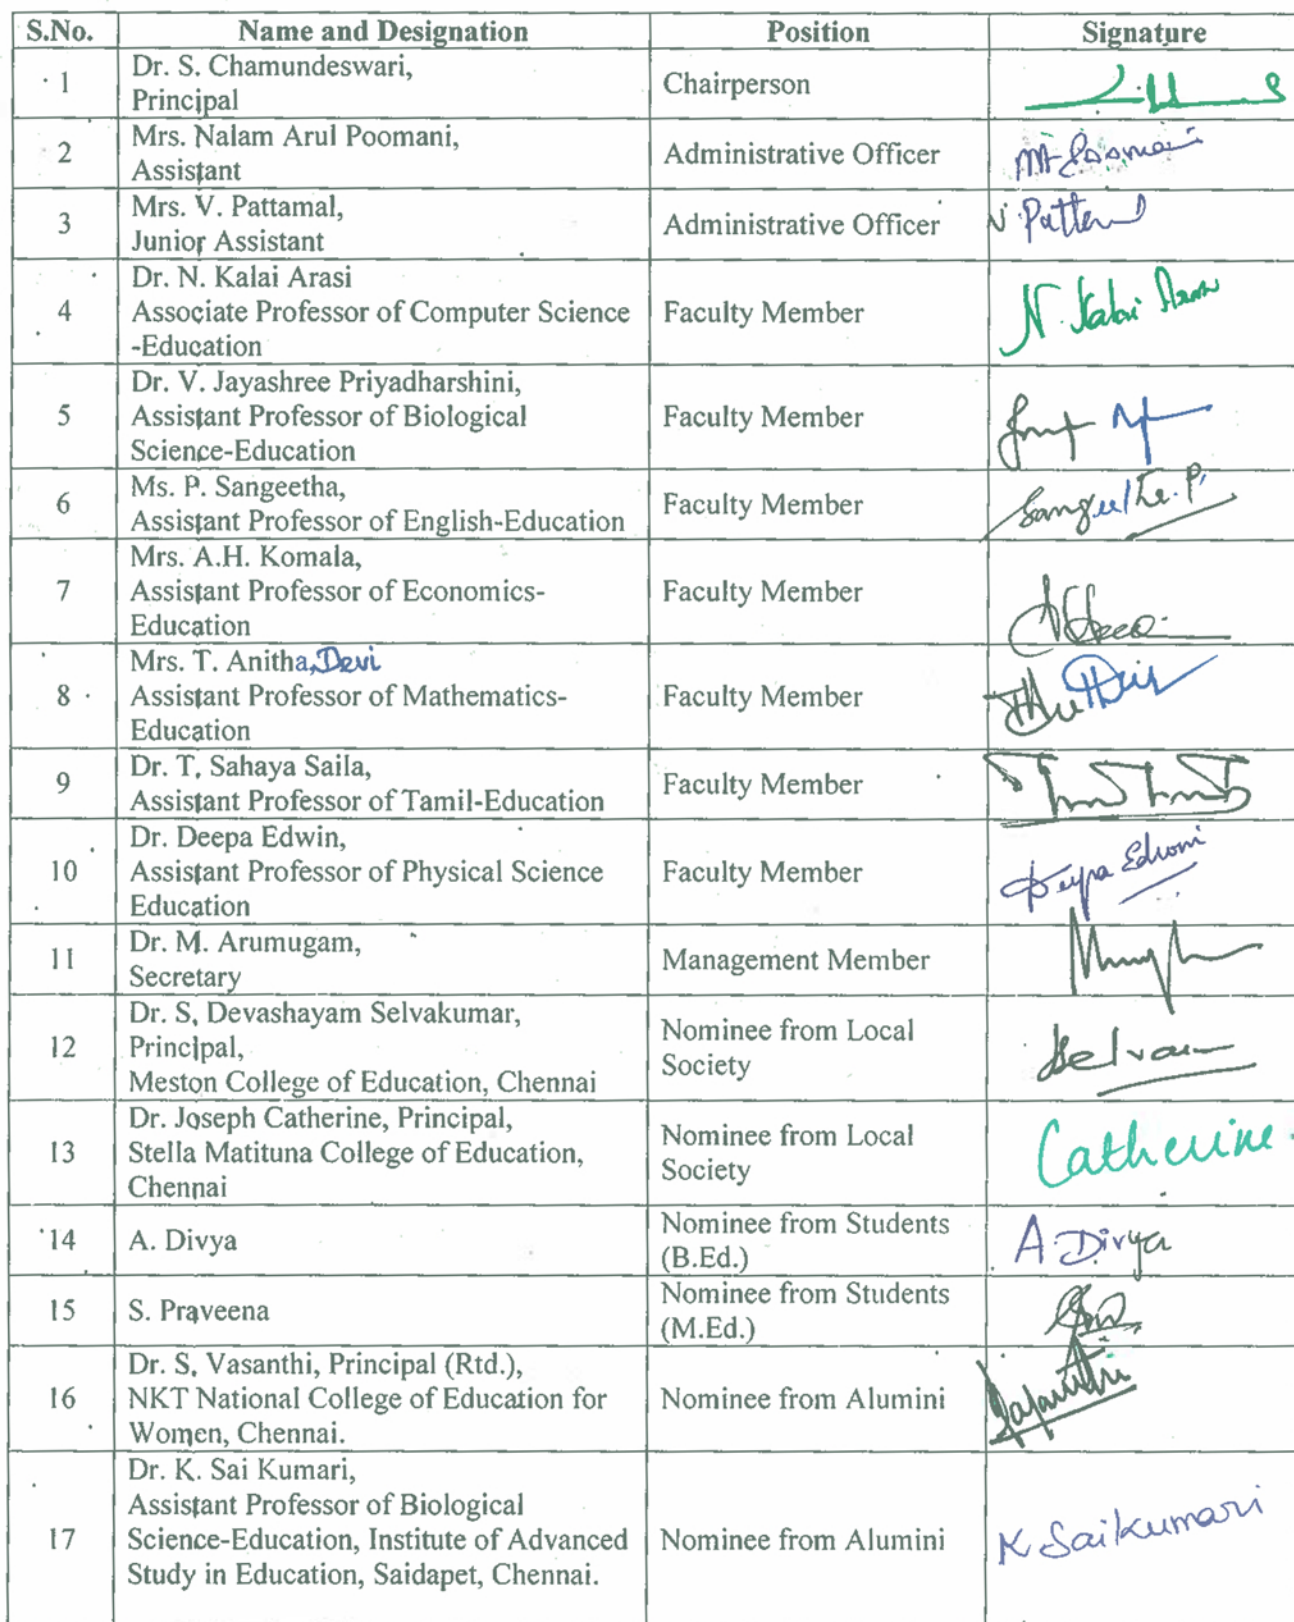 S.No. Name and Designation Position Signature
1 Dr. S. Chamundeswari,
Principal Chairperson
2 Mrs. Nalam Arul Poomani,
Assistant Administrative Officer
3 Mrs. V. Pattamal,
Junior Assistant Administrative Officer
4 Dr. N. Kalai Arasi
Associate Professor of Computer Science
-Education Faculty Member N. Kalai
5 Dr. V. Jayashree Priyadharshini,
Assistant Professor of Biological
Science-Education Faculty Member
6 Ms. P. Sangeetha,
Assistant Professor of English-Education Faculty Member Sangeetha. P
7 Mrs. A.H. Komala,
Assistant Professor of Economics-
Education Faculty Member
8 Mrs. T. Anitha, Devi
Assistant Professor of Mathematics-
Education Faculty Member
9 Dr. T. Sahaya Saila,
Assistant Professor of Tamil-Education Faculty Member
10 Dr. Deepa Edwin,
Assistant Professor of Physical Science
Education Faculty Member Deepa Edwin
11 Dr. M. Arumugam,
Secretary Management Member
12 Dr. S. Devashayam Selvakumar,
Principal,
Meston College of Education, Chennai Nominee from Local
Society
13 Dr. Joseph Catherine, Principal,
Stella Matituna College of Education,
Chennai Nominee from Local
Society Catherine
14 A. Divya Nominee from Students
(B.Ed.) A. Divya
15 S. Praveena Nominee from Students
(M.Ed.)
16 Dr. S. Vasanthi, Principal (Rtd.),
NKT National College of Education for
Women, Chennai. Nominee from Alumini
17 Dr. K. Sai Kumari,
Assistant Professor of Biological
Science-Education, Institute of Advanced
Study in Education, Saidapet, Chennai. Nominee from Alumini K Saikumari